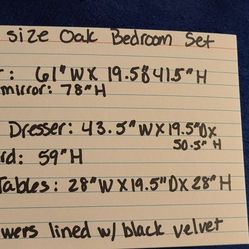 size Oak Bedroom Set
: 61"W X 19.5 X 41.5"H
mirror: 78"H
Dresser: 43.5"W X 19.5"D X
50.5"H
rd: 59"H
Tables: 28"W X 19.5"D X 28"H
wers lined w/ black velvet